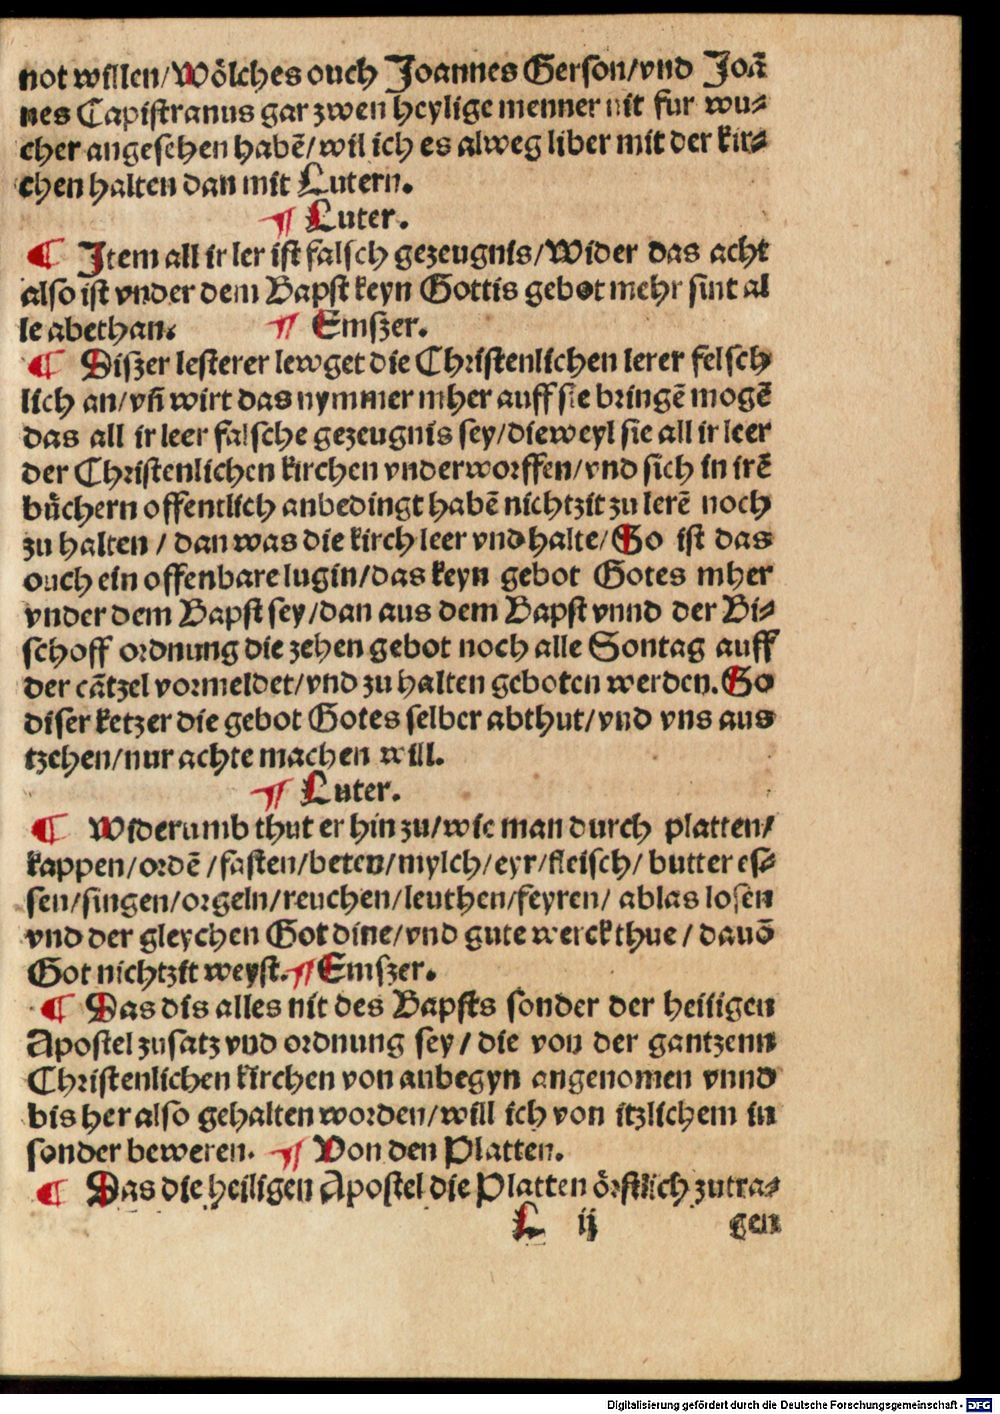 not willen/Wölches ouch Joannes Gerson/vnd Joañ
nes Capistranus gar zwen heylige menner nit fur wu⸗
cher angesehen habē/wil ich es alweg liber mit der kir⸗
chen halten dan mit Lutern.
¶ Luter.
¶ Item all ir ler ist falsch gezeugnis/Wider das acht
also ist vnder dem Bapst keyn Gottis gebot mehr sint al
le abethan. ¶ Emszer.
¶ Diszer lesterer lewget die Christenlichen lerer felsch
lich an/vñ wirt das nymmer mher auff sie bringē mogē
das all ir leer falsche gezeugnis sey/dieweyl sie all ir leer
der Christenlichen kirchen vnderworffen/vnd sich in irē
bůchern offentlich anbedingt habē nichtzit zu lerē noch
zu halten / dan was die kirch leer vnd halte/So ist das
ouch ein offenbare lugin/das keyn gebot Gotes mher
vnder dem Bapst sey/dan aus dem Bapst vnnd der Bi⸗
schoff ordnung die zehen gebot noch alle Sontag auff
der cātzel vormeldet/vnd zu halten geboten werden. So
diser ketzer die gebot Gotes selber abthut/vnd vns aus
tzehen/nur achte machen will.
¶ Luter.
¶ Widerumb thut er hin zu/wie man durch platten/
kappen/ordē/fasten/beten/mylch/eyr/fleisch/butter es⸗
sen/singen/orgeln/reuchen/leuthen/feyren/ ablas losen
vnd der gleychen Got dine/vnd gute werck thue / dauō
Got nichtzit weyst. ¶ Emszer.
¶ Das dis alles nit des Bapsts sonder der heiligen
Apostel zusatz vnd ordnung sey/ die von der gantzenn
Christenlichen kirchen von anbegyn angenomen vnnd
bis her also gehalten worden/will ich von itzlichem in
sonder beweren. ¶ Von den Platten.
¶ Das die heiligen Apostel die Platten örstlich zutra⸗
L ij gen
Digitalisierung gefördert durch die Deutsche Forschungsgemeinschaft - DFG